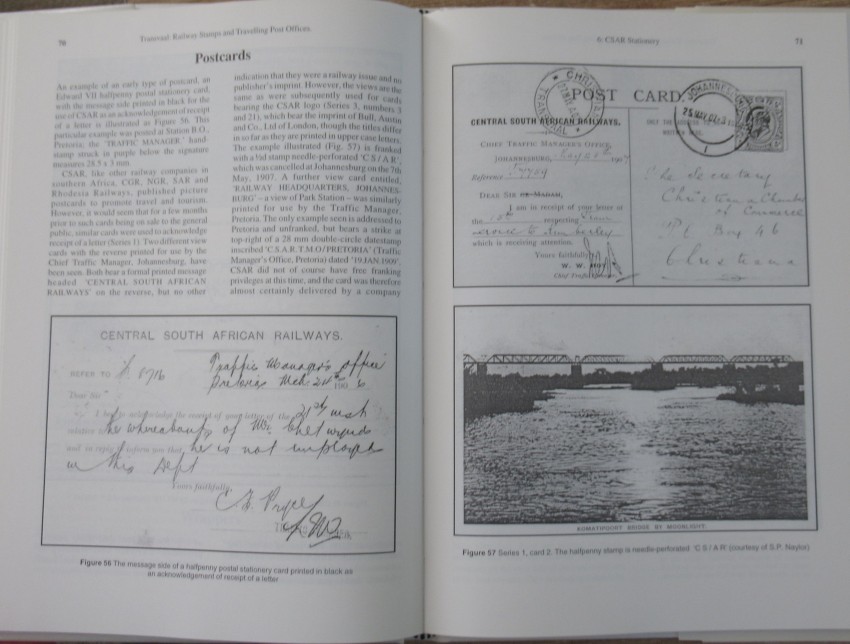 70
Transvaal: Railway Stamps and Travelling Post Offices.
Postcards
An example of an early type of postcard, an
Edward VII halfpenny postal stationery card,
with the message side printed in black for the
use of CSAR as an acknowledgement of receipt
of a letter is illustrated as Figure 56. This
particular example was posted at Station B.O.,
Pretoria; the 'TRAFFIC MANAGER' hand-
stamp struck in purple below the signature
measures 28.5 x 3 mm.
CSAR, like other railway companies in
southern Africa, CGR, NGR, SAR and
Rhodesia Railways, published picture
postcards to promote travel and tourism.
However, it would seem that for a few months
prior to such cards being on sale to the general
public, similar cards were used to acknowledge
receipt of a letter (Series 1). Two different view
cards with the reverse printed for use by the
Chief Traffic Manager, Johannesburg, have
been seen. Both bear a formal printed message
headed 'CENTRAL SOUTH AFRICAN
RAILWAYS' on the reverse, but no other
indication that they were a railway issue and no
publisher's imprint. However, the views are the
same as were subsequently used for cards
bearing the CSAR logo (Series 3, numbers 3
and 21), which bear the imprint of Bull, Austin
and Co., Ltd of London, though the titles differ
in so far as they are printed in upper case letters.
The example illustrated (Fig. 57) is franked
with a ½d stamp needle-perforated 'C S / A R',
which was cancelled at Johannesburg on the 7th
May, 1907. A further view card entitled,
'RAILWAY HEADQUARTERS, JOHANNES-
BURG' – a view of Park Station – was similarly
printed for use by the Traffic Manager,
Pretoria. The only example seen is addressed to
Pretoria and unfranked, but bears a strike at
top right of a 28 mm double-circle datestamp
inscribed 'C.S.A.R. T.M.O/PRETORIA' (Traffic
Manager's Office, Pretoria) dated '19 JAN 1909'.
CSAR did not of course have free franking
privileges at this time, and the card was therefore
almost certainly delivered by a company
CENTRAL SOUTH AFRICAN RAILWAYS.
REFER TO
Traffic Manager's Office
Pretoria Mch 24th 1906
Dear Sir
I beg to acknowledge the receipt of your letter of the 21st inst
relative to the whereabouts of Mr.
and in reply inform you that he is not employed
in this Dept
Yours faithfully,
Figure 56 The message side of a halfpenny postal stationery card printed in black as
an acknowledgement of receipt of a letter
6: CSAR Stationery
71
POST CARD.
TRANSVAAL
CENTRAL SOUTH AFRICAN RAILWAYS.
CHIEF TRAFFIC MANAGER'S OFFICE,
JOHANNESBURG,
Reference
DEAR SIR OR MADAM,
I am in receipt of your letter of
the respecting
which is receiving attention.
Yours faithfully
W. W. HOY
Chief Traffic Manager
The Secretary
Christiana Chamber
of Commerce
Box 46
Christiana
KOMATIPOORT BRIDGE BY MOONLIGHT.
Figure 57 Series 1, card 2. The halfpenny stamp is needle-perforated 'C S / A R' (courtesy of S.P. Naylor)